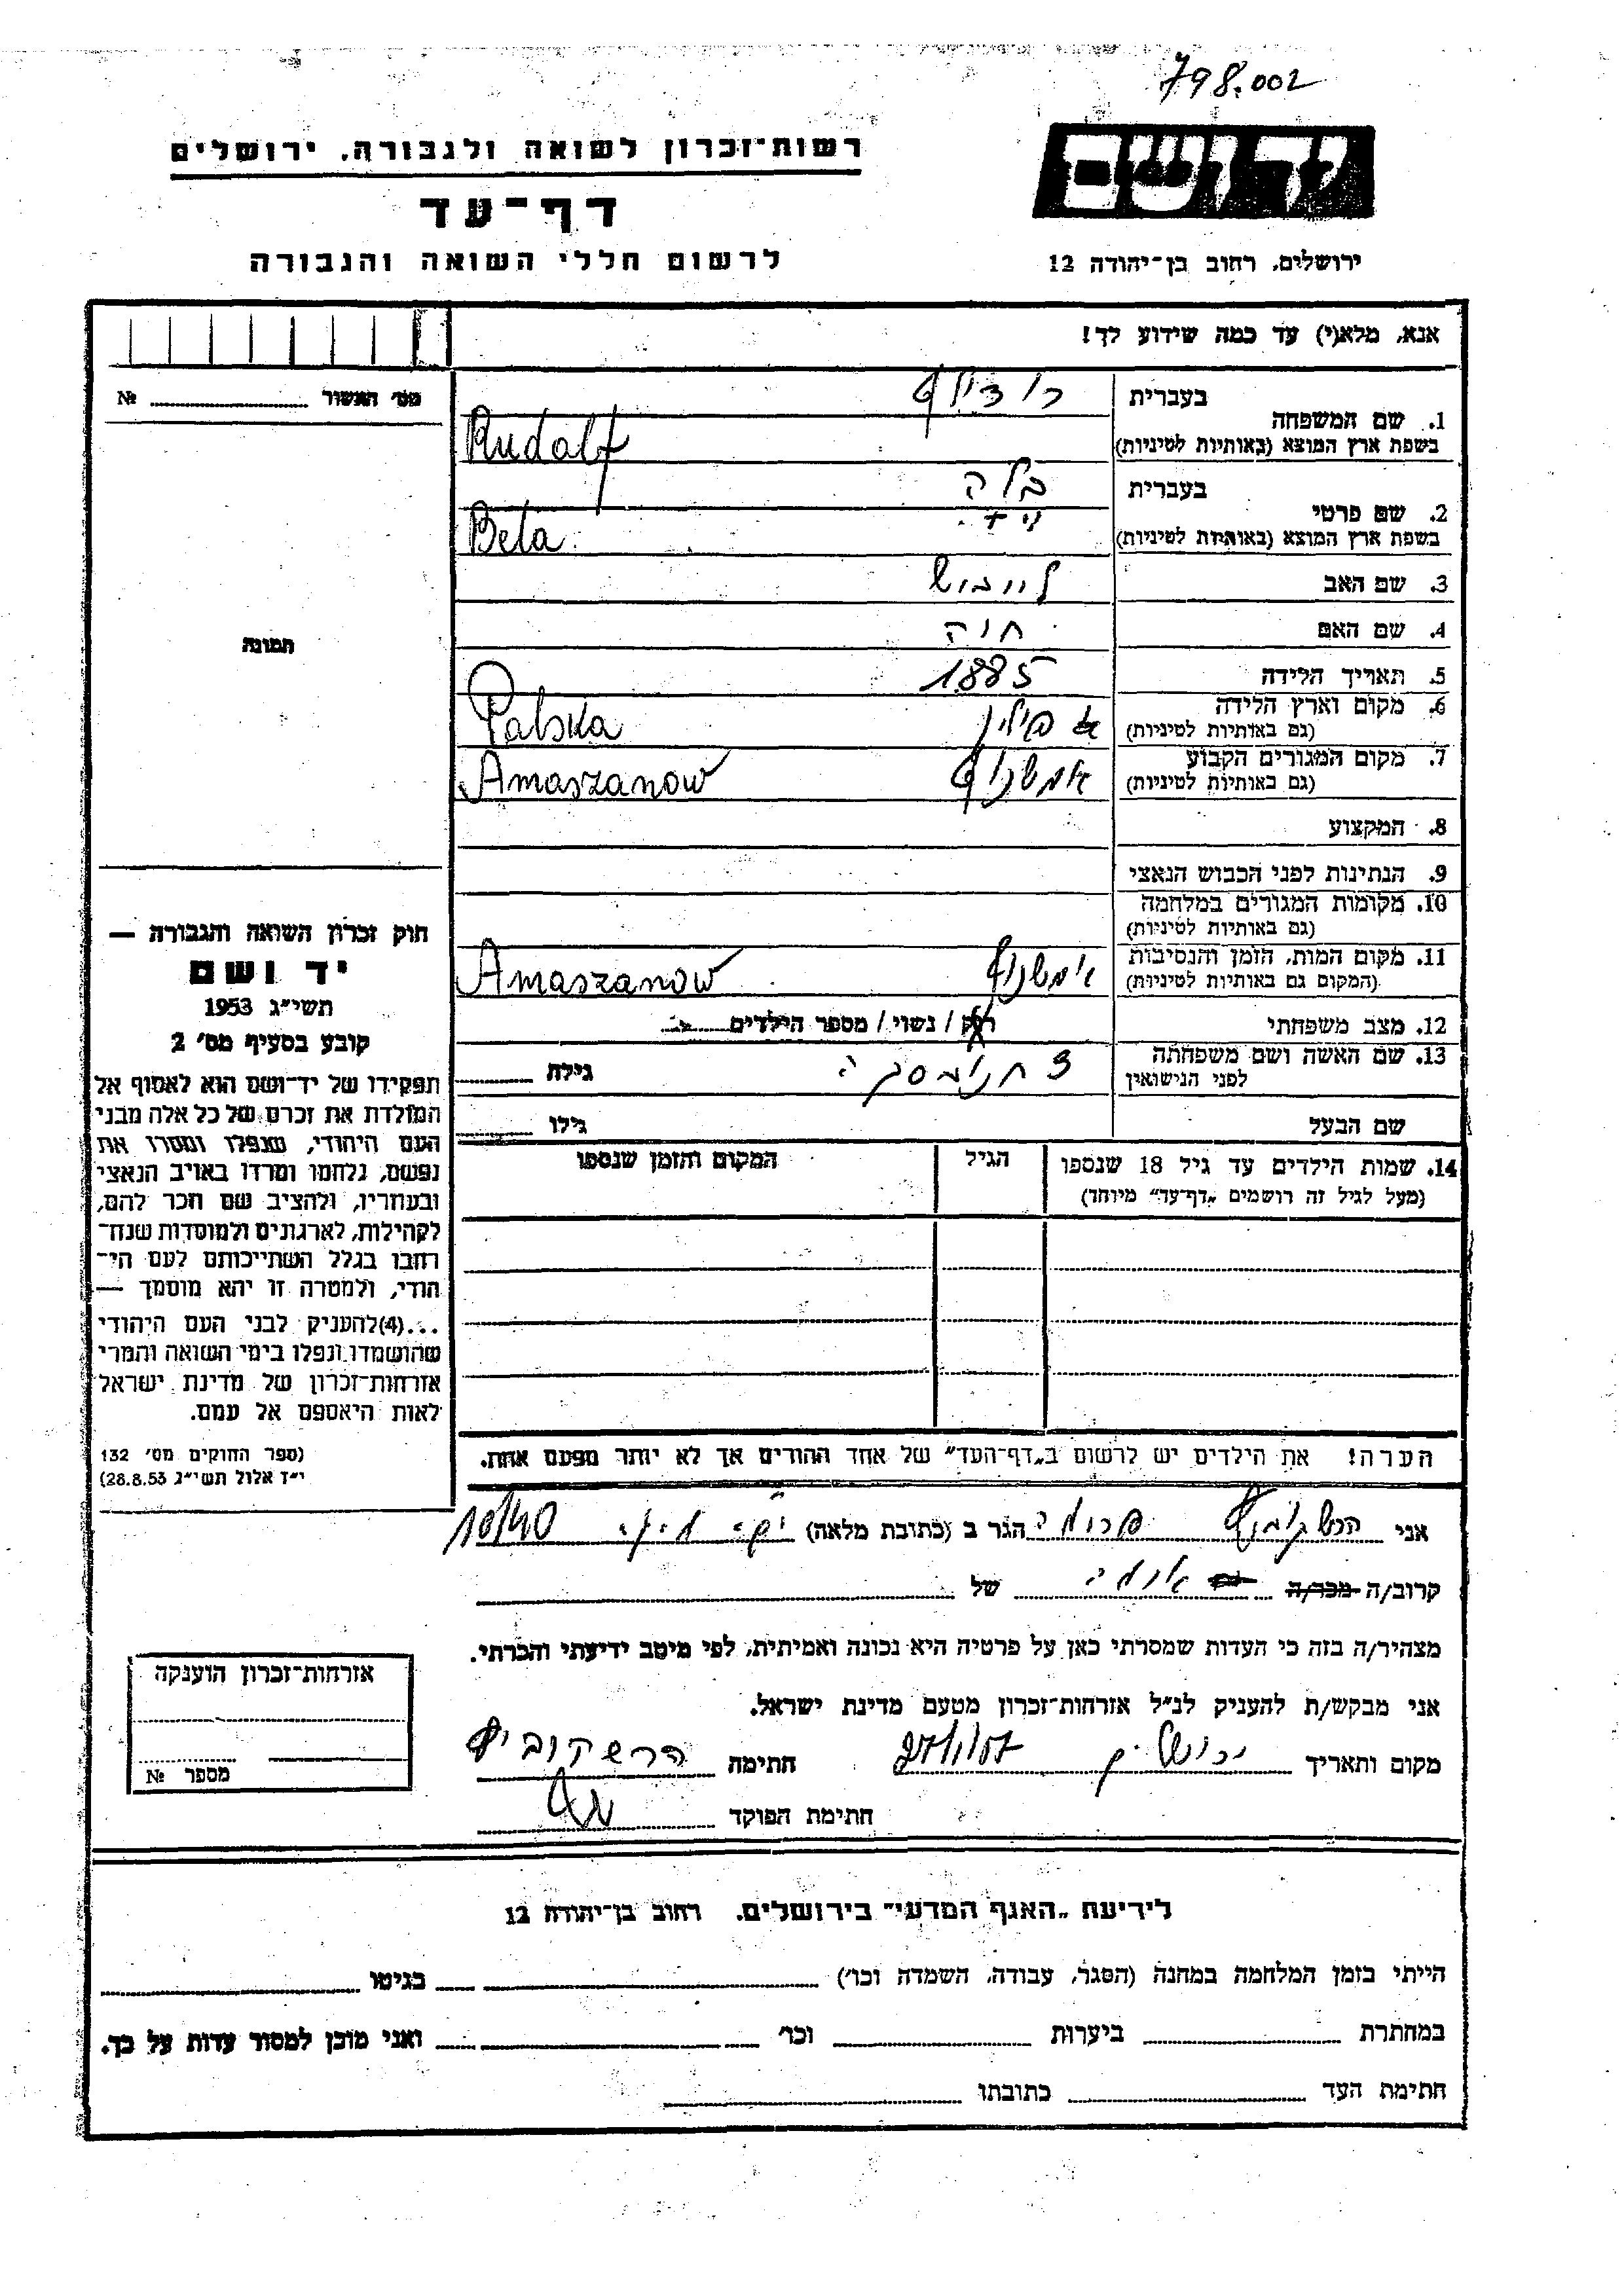 798.002
רשות־זכרון לשואה ולגבורה, ירושלים
יד ושם
דף־עד
לרשום חללי השואה והגבורה
ירושלים, רחוב בן־יהודה 12
אנא, מלא(י) עד כמה שידוע לך!
מס׳ האשור № 
בעברית רודולף
1. שם המשפחה
בשפת ארץ המוצא (באותיות לטיניות) Rudolf
בעברית בלה
2. שם פרטי
בשפת ארץ המוצא (באותיות לטיניות) Bela
3. שם האב לייבוש
4. שם האם חוה
5. תאריך הלידה 1885
6. מקום וארץ הלידה פולין Polska
(גם באותיות לטיניות)
7. מקום המגורים הקבוע אמשנוף Amaszanow
(גם באותיות לטיניות)
8. המקצוע
9. הנתינות לפני הכבוש הנאצי
10. מקומות המגורים במלחמה
(גם באותיות לטיניות)
11. מקום המות, הזמן והנסיבות אמשנוף Amaszanow
(המקום גם באותיות לטיניות)
12. מצב משפחתי רוק / נשוי / מספר הילדים
13. שם האשה ושם משפחתה
לפני הנישואין גילה
שם הבעל גילו
14. שמות הילדים עד גיל 18 שנספו הגיל המקום והזמן שנספו
(מעל לגיל זה רושמים „דף־עד״ מיוחד)
תמונה
חוק זכרון השואה והגבורה —
יד ושם
תשי״ג 1953
קובע בסעיף מס׳ 2
תפקידו של יד־ושם הוא לאסוף אל
המולדת את זכרם של כל אלה מבני
העם היהודי, שנפלו ומסרו את
נפשם, נלחמו ומרדו באויב הנאצי
ובעוזריו, ולהציב שם וזכר להם,
לקהילות, לארגונים ולמוסדות שנח־
רבו בגלל השתייכותם לעם הי־
הודי, ולמטרה זו יהא מוסמך —
...(4)להעניק לבני העם היהודי
שהושמדו ונפלו בימי השואה והמרי
אזרחות־זכרון של מדינת ישראל
לאות היאספם אל עמם.
(ספר החוקים מס׳ 132
י״ז אלול תשי״ג 28.8.53)
הערה! את הילדים יש לרשום ב„דף־העד״ של אחד ההורים אך לא יותר מפעם אחת.
אני הרשקוביץ הגר ב (כתובת מלאה) 10/40
קרוב/ה מכר/ה של
מצהיר/ה בזה כי העדות שמסרתי כאן על פרטיה היא נכונה ואמיתית, לפי מיטב ידיעתי והכרתי.
אני מבקש/ת להעניק לנ״ל אזרחות־זכרון מטעם מדינת ישראל.
מקום ותאריך ירושלים חתימה הרשקוביץ
חתימת הפוקד
אזרחות־זכרון הוענקה
מספר №
לידיעת „האגף המדעי״ בירושלים, רחוב בן־יהודה 12
הייתי בזמן המלחמה במחנה (הסגר, עבודה, השמדה וכו׳) בגיטו
במחתרת ביערות וכו׳ ואני מוכן למסור עדות על כך.
חתימת העד כתובתו